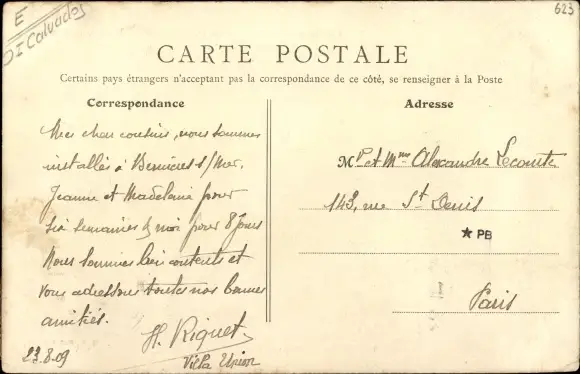 E
DI Calvados
623
CARTE POSTALE
Certains pays étrangers n'acceptant pas la correspondance de ce côté, se renseigner à la Poste
Correspondance
Adresse
Mes chers cousins, nous sommes
installés à Bernières s/Mer,
Jeanne et Madeleine pour
six semaines & moi pour 8 jours
Nous sommes bien contents et
vous adressons toutes nos bonnes
amitiés.
H. Riquet
23.8.09
Villa Union
Mr et Mme Alexandre Lecomte
143, rue St Denis
★ PB
Paris